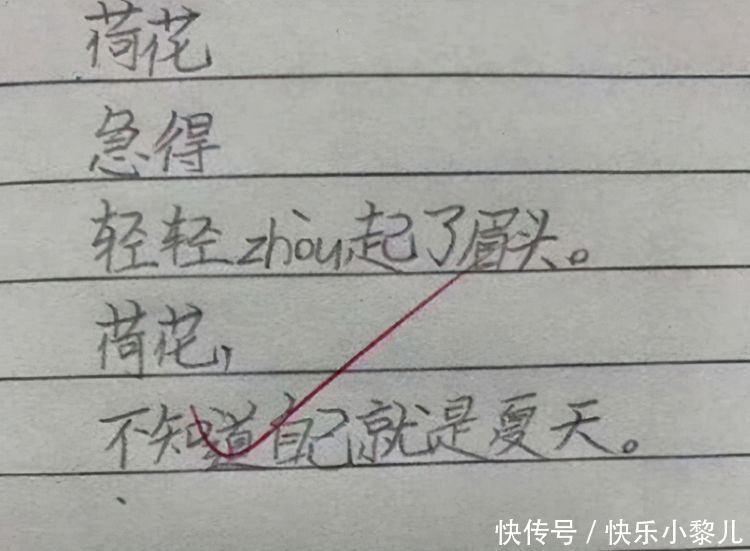 荷花
急得
轻轻zhòu起了眉头。
荷花,
不知道自己就是夏天。
快传号/快乐小黎儿